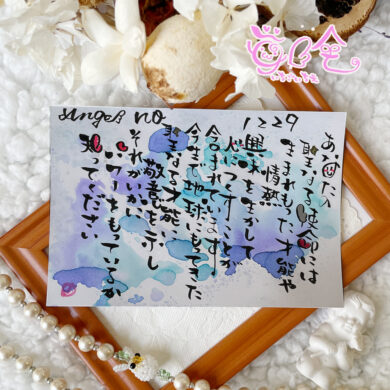 Angel no
1229
あなたの
聖なる使命には
生まれもった才能や
情熱
興味を生かして
パワーをもっているか
知ってください
含まれています!
今生の地球にもってきた
聖なる才能に
敬意を示し
それがいかに